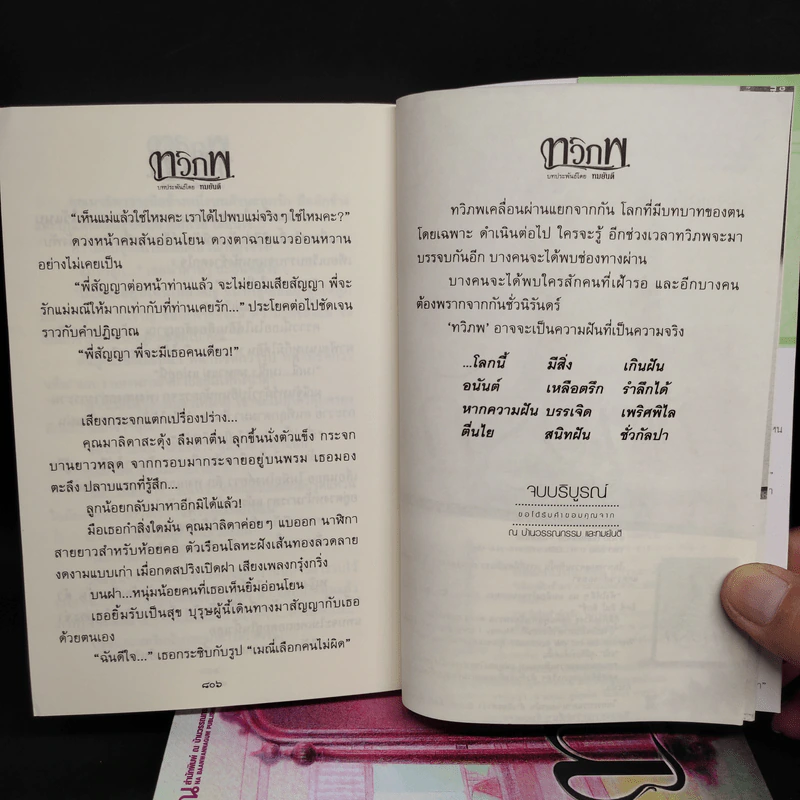 ทวิภพ
บทประพันธ์โดย ทมยันตี
“เห็นแม่แล้วใช่ไหมคะ เราได้ไปพบแม่จริงๆ ใช่ไหมคะ?”
ดวงหน้าคมสันอ่อนโยน ดวงตาฉายแววอ่อนหวาน
อย่างไม่เคยเป็น
“พี่สัญญาต่อหน้าท่านแล้ว จะไม่ยอมเสียสัญญา พี่จะ
รักแม่มณีให้มากเท่ากับที่ท่านเคยรัก...” ประโยคต่อไปชัดเจน
ราวกับคำปฏิญาณ
“พี่สัญญา พี่จะมีเธอคนเดียว!”
เสียงกระจกแตกเปรื่องปร่าง...
คุณมาลิดาสะดุ้ง ลืมตาตื่น ลุกขึ้นนั่งตัวแข็ง กระจก
บานยาวหลุด จากกรอบมากระจายอยู่บนพรม เธอมอง
ตะลึง ปลาบแรกที่รู้สึก...
ลูกน้อยกลับมาหาอีกมิได้แล้ว!
มือเธอกำสิ่งใดมั่น คุณมาลิดาค่อยๆ แบออก นาฬิกา
สายยาวสำหรับห้อยคอ ตัวเรือนโลหะฝังเส้นทองลวดลาย
งดงามแบบเก่า เมื่อกดสปริงเปิดฝา เสียงเพลงกรุ๋งกริ๋ง
บนฝา...หนุ่มน้อยคนที่เธอเห็นยิ้มอ่อนโยน
เธอยิ้มรับเป็นสุข บุรุษผู้นี้เดินทางมาสัญญากับเธอ
ด้วยตนเอง
“ฉันดีใจ...” เธอกระซิบกับรูป “เมณี่เลือกคนไม่ผิด”
๘๐๖
ทวิภพ
บทประพันธ์โดย ทมยันตี
ทวิภพเคลื่อนผ่านแยกจากกัน โลกที่มีบทบาทของตน
โดยเฉพาะ ดำเนินต่อไป ใครจะรู้ อีกช่วงเวลาทวิภพจะมา
บรรจบกันอีก บางคนจะได้พบช่องทางผ่าน
บางคนจะได้พบใครสักคนที่เฝ้ารอ และอีกบางคน
ต้องพรากจากกันชั่วนิรันดร์
‘ทวิภพ’ อาจจะเป็นความฝันที่เป็นความจริง
...โลกนี้ มีสิ่ง เกินฝัน
อนันต์ เหลือตรึก รำลึกได้
หากความฝัน บรรเจิด เพริศพิไล
ตื่นไย สนิทฝัน ชั่วกัลปา
จบบริบูรณ์
ขอได้รับคำขอบคุณจาก
ณ บ้านวรรณกรรม และทมยันตี